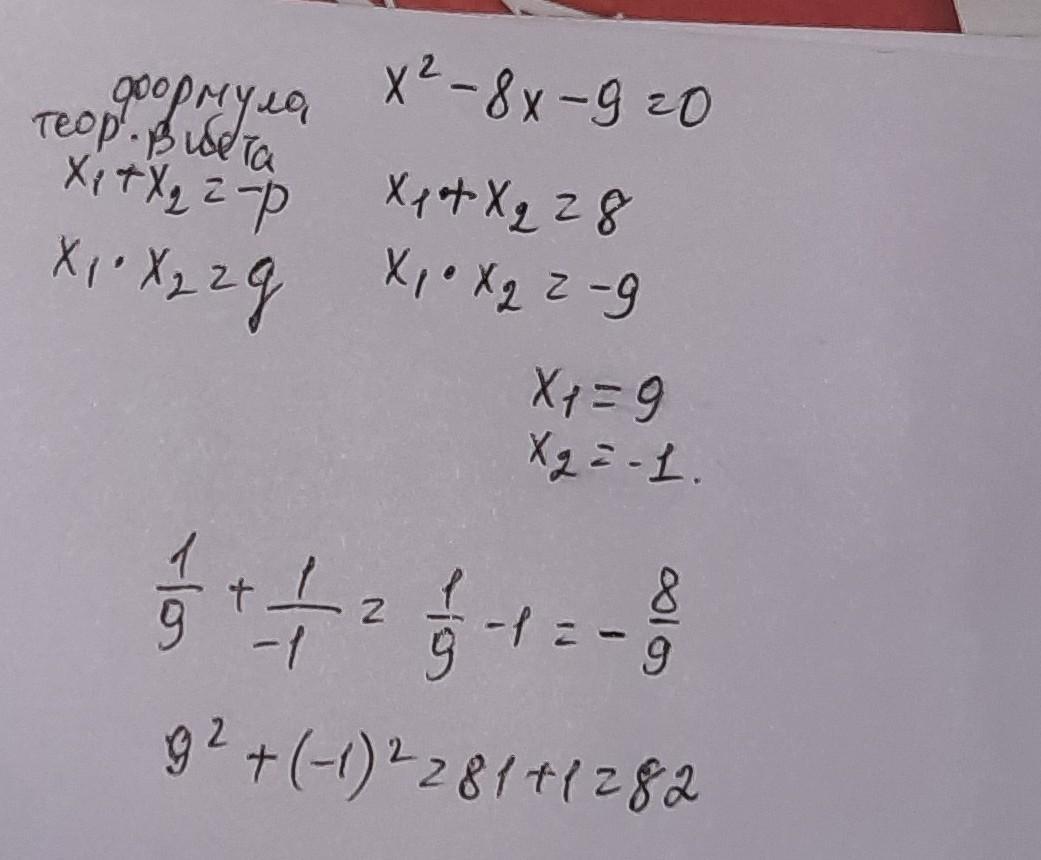 формула
теор. Виета
x₁+x₂=-p
x₁·x₂=q
x²-8x-9=0
x₁+x₂=8
x₁·x₂=-9
x₁=9
x₂=-1.
1/9 + 1/-1 = 1/9 -1 = - 8/9
9²+(-1)²=81+1=82